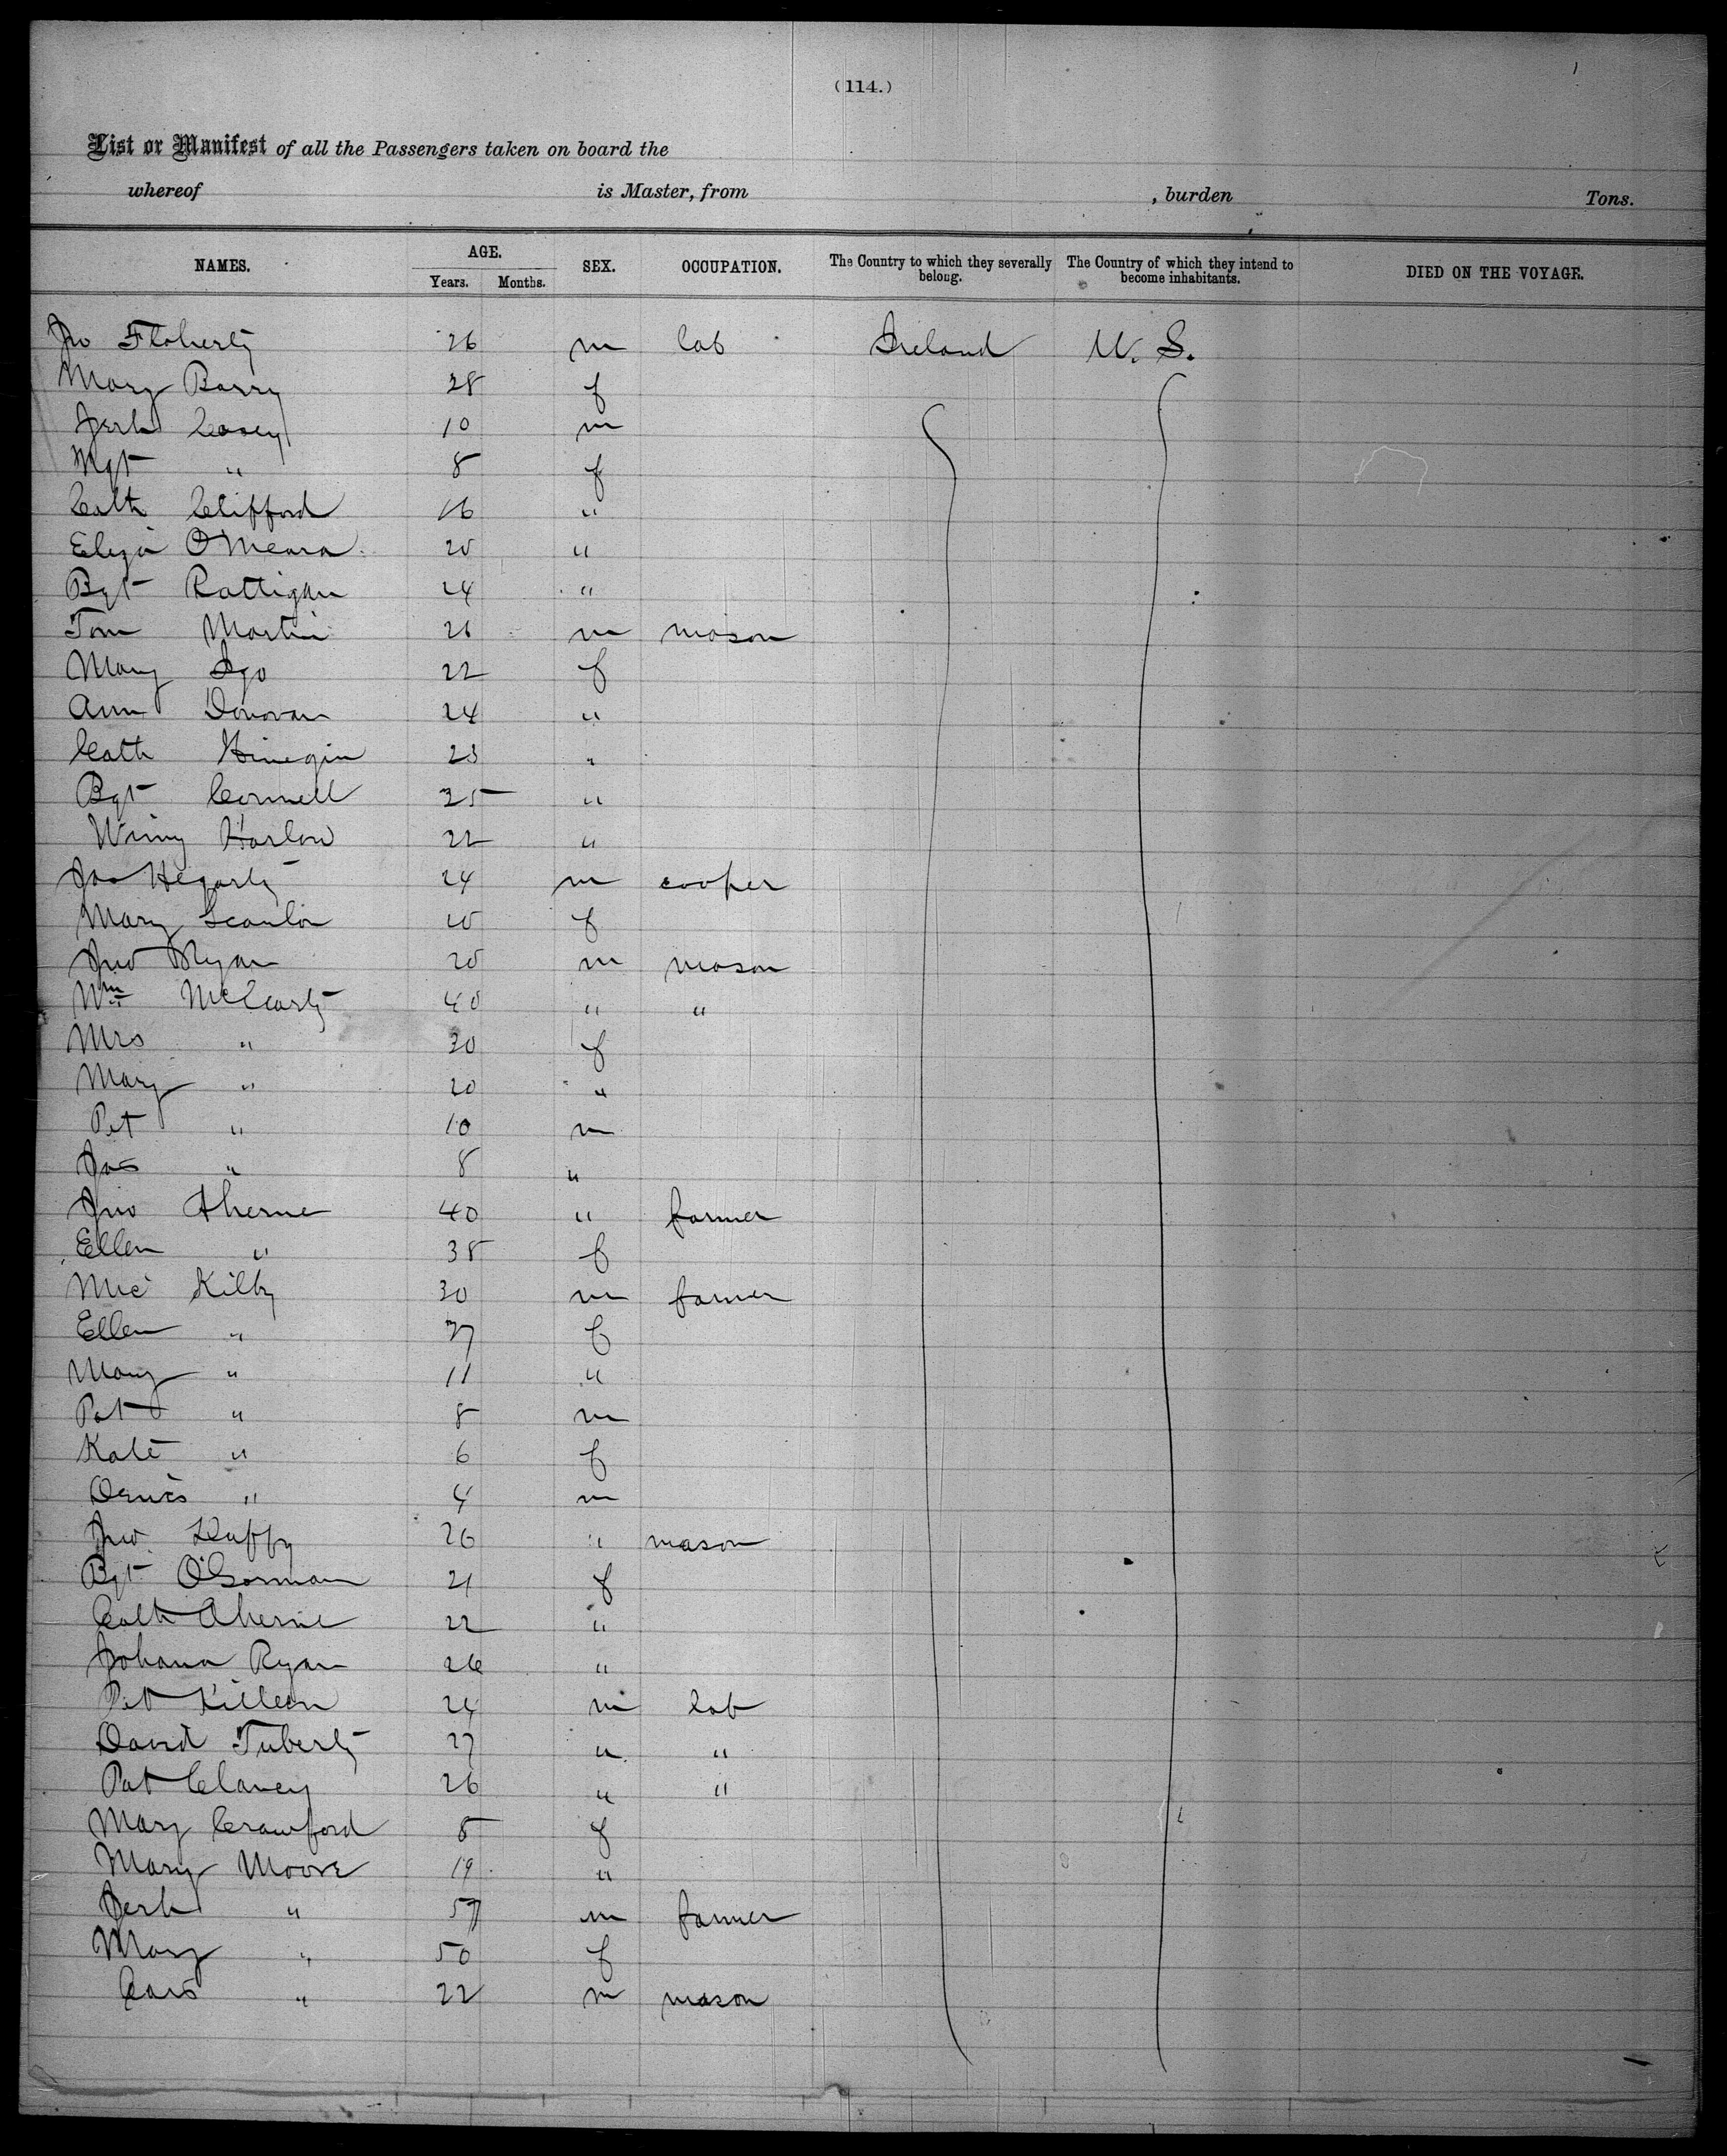 (114.)
List or Manifest of all the Passengers taken on board the
whereof is Master, from , burden Tons.
NAMES. AGE. Years. Months. SEX. OCCUPATION. The Country to which they severally belong. The Country of which they intend to become inhabitants. DIED ON THE VOYAGE.
Jno Flaherty 26 m lab Ireland U. S.
Mary Barry 28 f
Jerh Casey 10 m
Mgt " 8 f
Cath Clifford 16 "
Eliza O'Meara 20 "
Bgt Rattigan 24 "
Tom Martin 26 m mason
Mary Igo 22 f
Ann Donovan 24 "
Cath 23 "
Bgt Connell 25 "
Winny Harlow 22 "
Jas Hegarty 24 m cooper
Mary Scanlon 20 f
Jno Ryan 20 m mason
Wm McCarty 40 " "
Mrs " 30 f
Mary " 20 "
Pat " 10 m
Jas " 8 "
Jno Aherne 40 " farmer
Ellen " 38 f
Mic Kilby 30 m farmer
Ellen " 37 f
Mary " 11 "
Pat " 8 m
Kate " 6 f
Denis " 4 m
Jno Duffy 26 " mason
Bgt O'Gorman 21 f
Cath Aherne 22 "
Johana Ryan 26 "
Pat Killeen 24 m lab
David Tuberty 27 " "
Pat Clancy 26 " "
Mary Crawford 8 f
Mary Moore 19 "
Jerh " 57 m farmer
Mary " 50 f
" 22 m mason